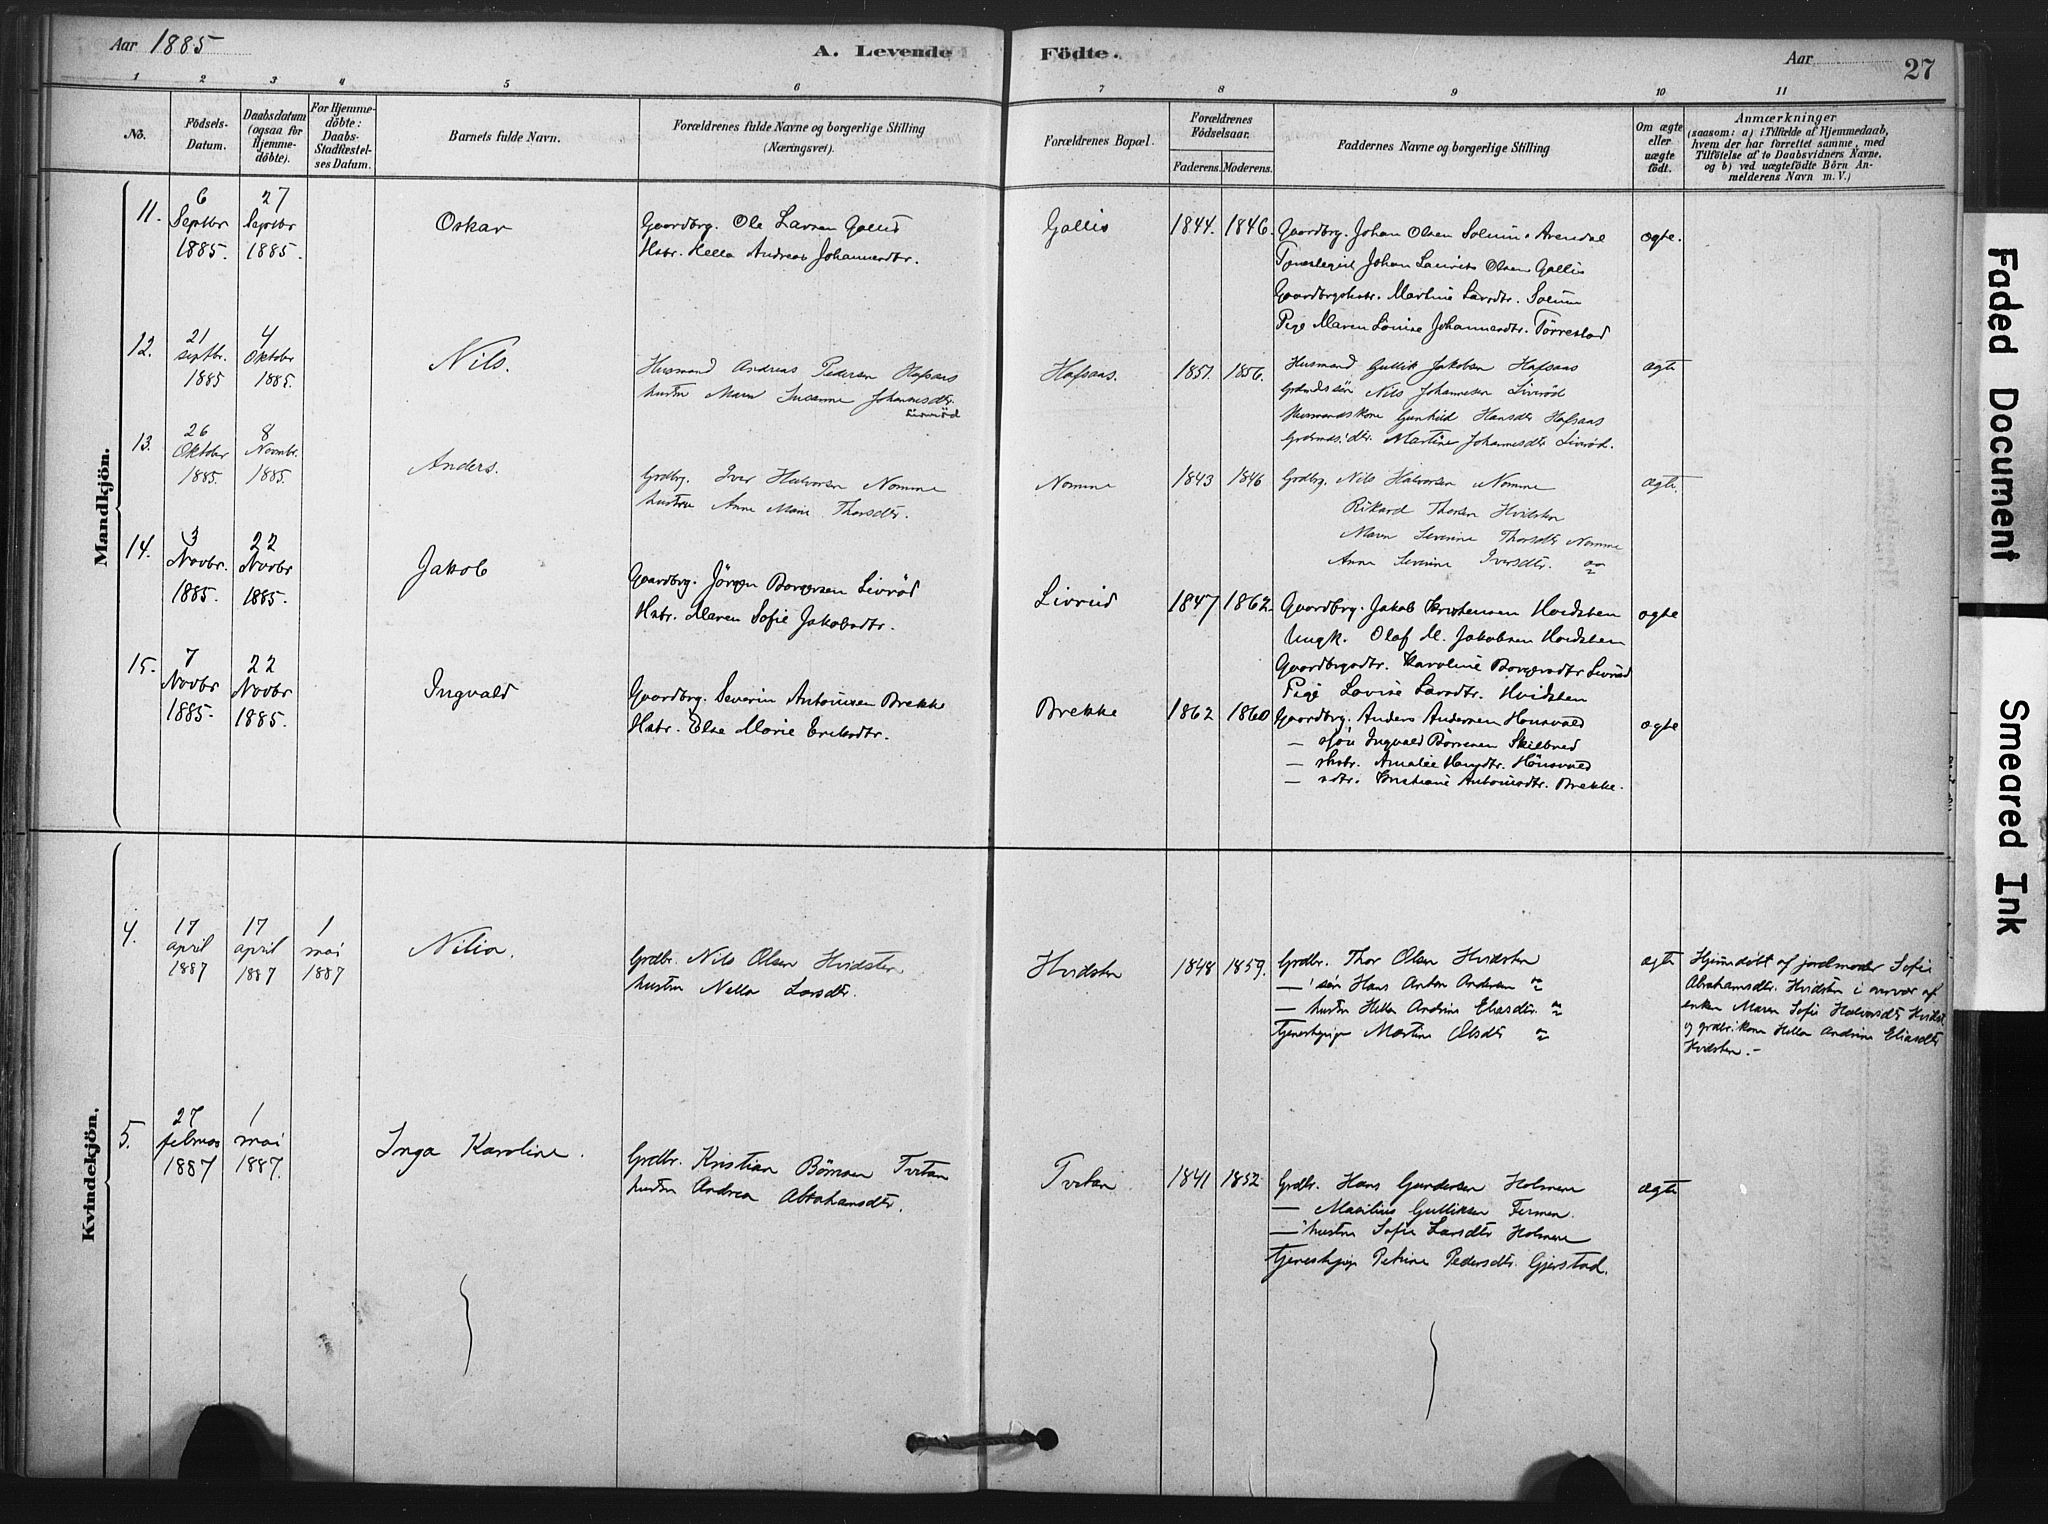 Aar 1885
A. Levende Födte.
Aar
27
1 2 3 4 5 6 7 8 9 10 11
No.
Födsels-
Datum.
Daabsdatum
(ogsaa for
Hjemme-
döbte).
For Hjemme-
döbte:
Daabs-
Stadfæstel-
ses Datum.
Barnets fulde Navn.
Forældrenes fulde Navne og borgerlige Stilling
(Næringsvei).
Forældrenes Bopæl.
Forældrenes
Födselsaar.
Faderens. Moderens.
Faddernes Navne og borgerlige Stilling
Om ægte
eller
uægte
födt.
Anmærkninger
(saasom: a) i Tilfælde af Hjemmedaab,
hvem der har forrettet samme, med
Tilföielse af to Daabsvidners Navne,
og b) ved uægtefödte Börn An-
melderens Navn m. V.)
Mandkjön.
11.
6
Septbr
1885.
27
Septbr
1885.
Oskar
Gaardbrg. Ole Larsen Gallis
Hstr. Hella Andrea Johannesdtr.
Gallis
1844. 1846.
Gaardbrg. Johan Olsen Solum Arendal
Johan Laurits Olsen Gallis
Martine Larsdtr. Solum
Pige Maren Louise Johannesdtr. Törrestad
ægte.
12.
21
septbr.
1885
4
Oktober
1885.
Nils.
Husmand Andreas Pedersen Hafsaas
hustru Maren Susanne Johannesdtr.
Hafsaas.
1851. 1856.
Husmand Gullik Jakobsen Hafsaas
Nils Johannesen Livrød
Husmandskone Gunhild Hansdtr Hafsaas
Martine Johannesdtr Livrød.
ægte
13.
26
Oktober
1885.
8
Novmbr.
1885.
Anders.
Grdbrg. Iver Halvorsen Nomme
hustru Anne Marie Thorsdtr.
Nomme
1843 1846
Grdbrg. Nils Halvorsen Nomme
Rikard Thorsen Hvidsten
Maren Severine Thorsdtr Nomme
Anne Severine Iversdtr.
ægte.
14.
3
Novbr.
1885.
22
Novbr
1885.
Jakob
Gaardbrg. Jörgen Borgersen Livröd
Hstr. Maren Sofie Jakobsdtr.
Livrud
1847 1862
Gaardbrg. Jakob Kristensen Hvidsten
Ungk. Olaf M. Jakobsen Hvidsten
Gaardbrgsdtr. Karoline Borgersdtr Livröd
Pige Lovise Larsdtr. Hvidsten
ægte
15.
7
Novbr
1885.
22
Novbr
1885.
Ingvald
Gaardbrg. Severin Antonisen Brekke
Hstr. Else Marie Eriksdtr.
Brekke
1862 1860
Gaardbrg. Anders Andersen Hönsvald
— Ingvald Börresen Skilbred
— Amalie Hönsvald
— Kristiane Antonisdtr. Brekke.
ægte
Kvindekjön.
4.
17
april
1887
17
april
1887
1
mai
1887
Nilia.
Grdbr. Nils Olsen Hvidsten
hustru Nella Larsdtr.
Hvidsten
1848 1859.
Grdbr. Thor Olsen Hvidsten
— sön Hans Anton Andersen
— hustru Hella Andrine Eliasdtr.
tjenestepige Martine Olsdtr
ægte
Hjemmedöbt af jordmoder Sofie
Abrahamsdtr. Hvidsten i overvær af
enken Maren Sofie Halvorsdtr Hvidst.
og grdbr.kone Hella Andrine Eliasdtr
Hvidsten.-
5.
27
februar
1887
1
mai
1887.
Inga Karoline.
Grdbr. Kristian Börresen Tvetan
hustru Andrea Abrahamsdtr.
Tvetan
1841 1852
Grdbr. Hans Gundersen Holmen
— Maxilius Gulliksen Firmen.
— hustru Sofie Larsdtr Holmen
tjenestepige Petrine Pedersdtr. Gjerstad.
ægte
Faded Document
Smeared Ink